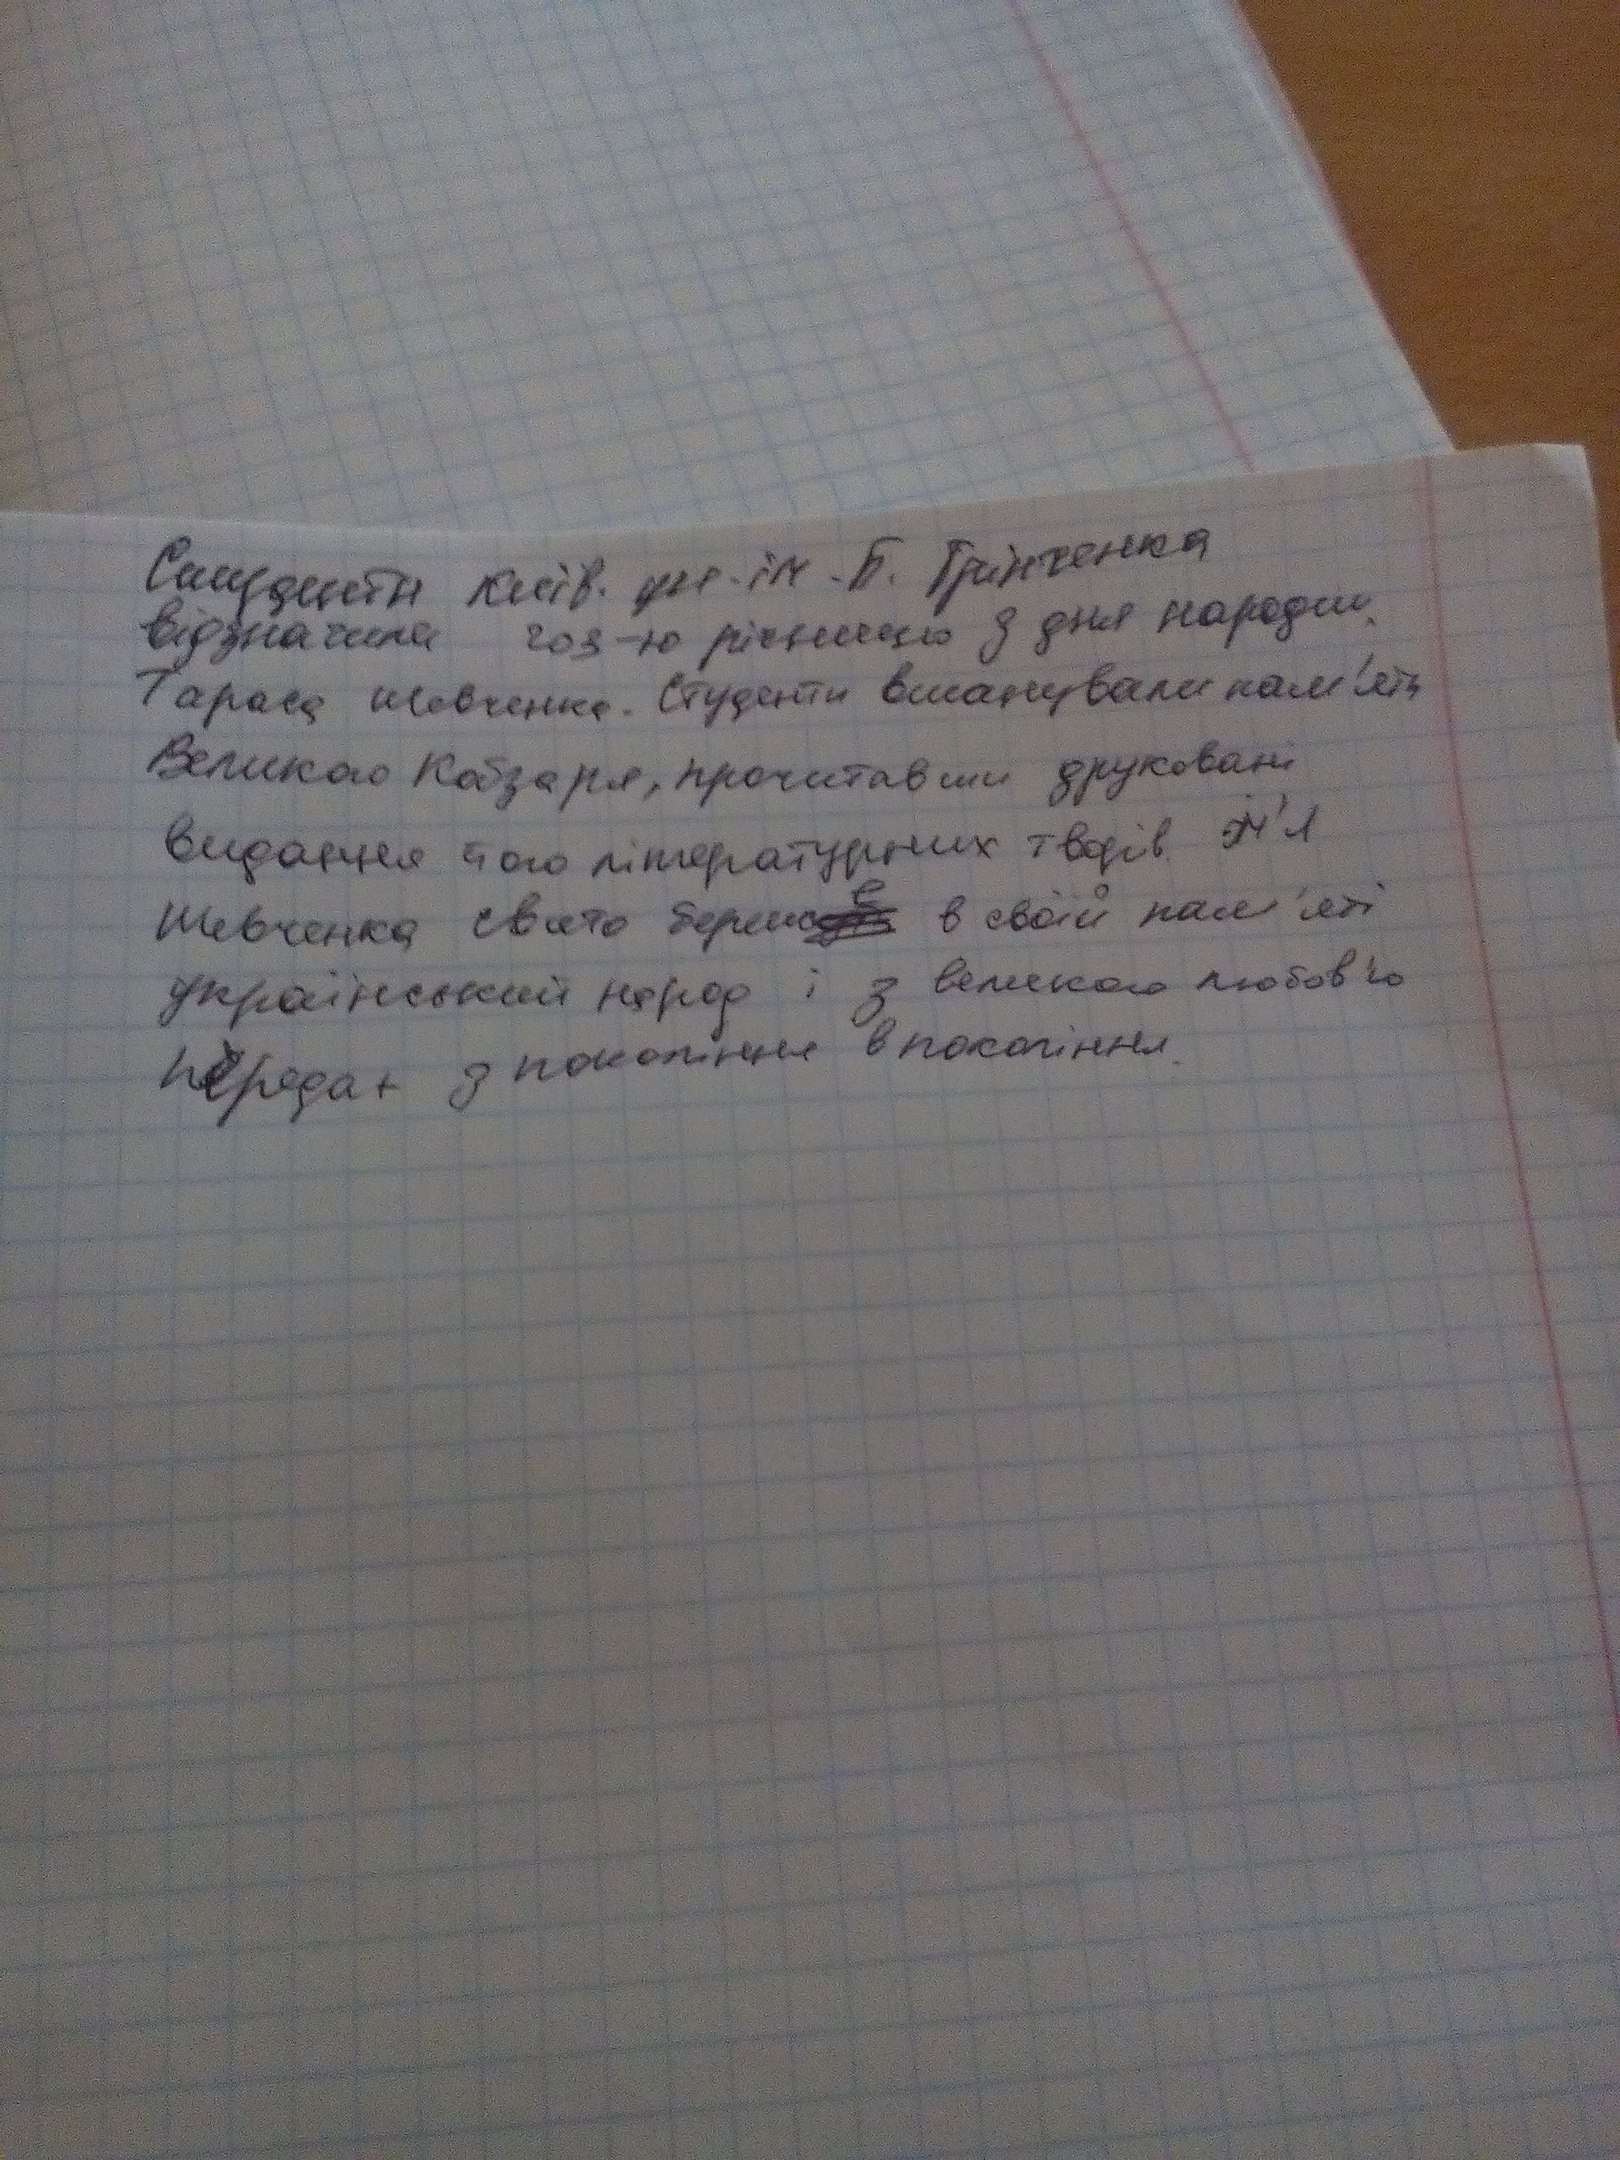 Студенти Київ. ун. ім. Б. Грінченка
відзначили 203-ю річницю з дня народж.
Тараса Шевченка. Студенти вшанували пам'ять
Великого Кобзаря, прочитавши друковані
видання його літературних творів. Ім'я
Шевченка свято береже в своїй пам'яті
український народ і з великою любов'ю
передає з покоління в покоління.